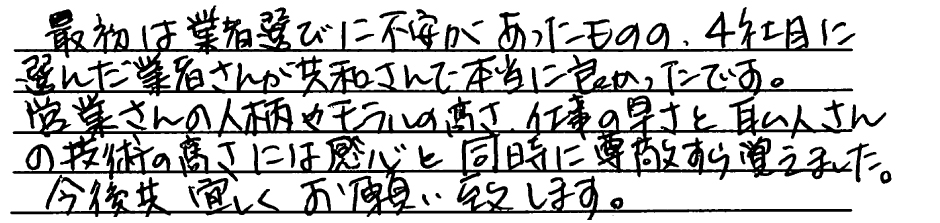 最初は業者選びに不安があったものの、4社目に
選んだ業者さんが共和さんで本当に良かったです。
営業さんの人柄やモラルの高さ、仕事の早さと職人さん
の技術の高さには感心と同時に尊敬すら覚えました。
今後共宜しくお願い致します。